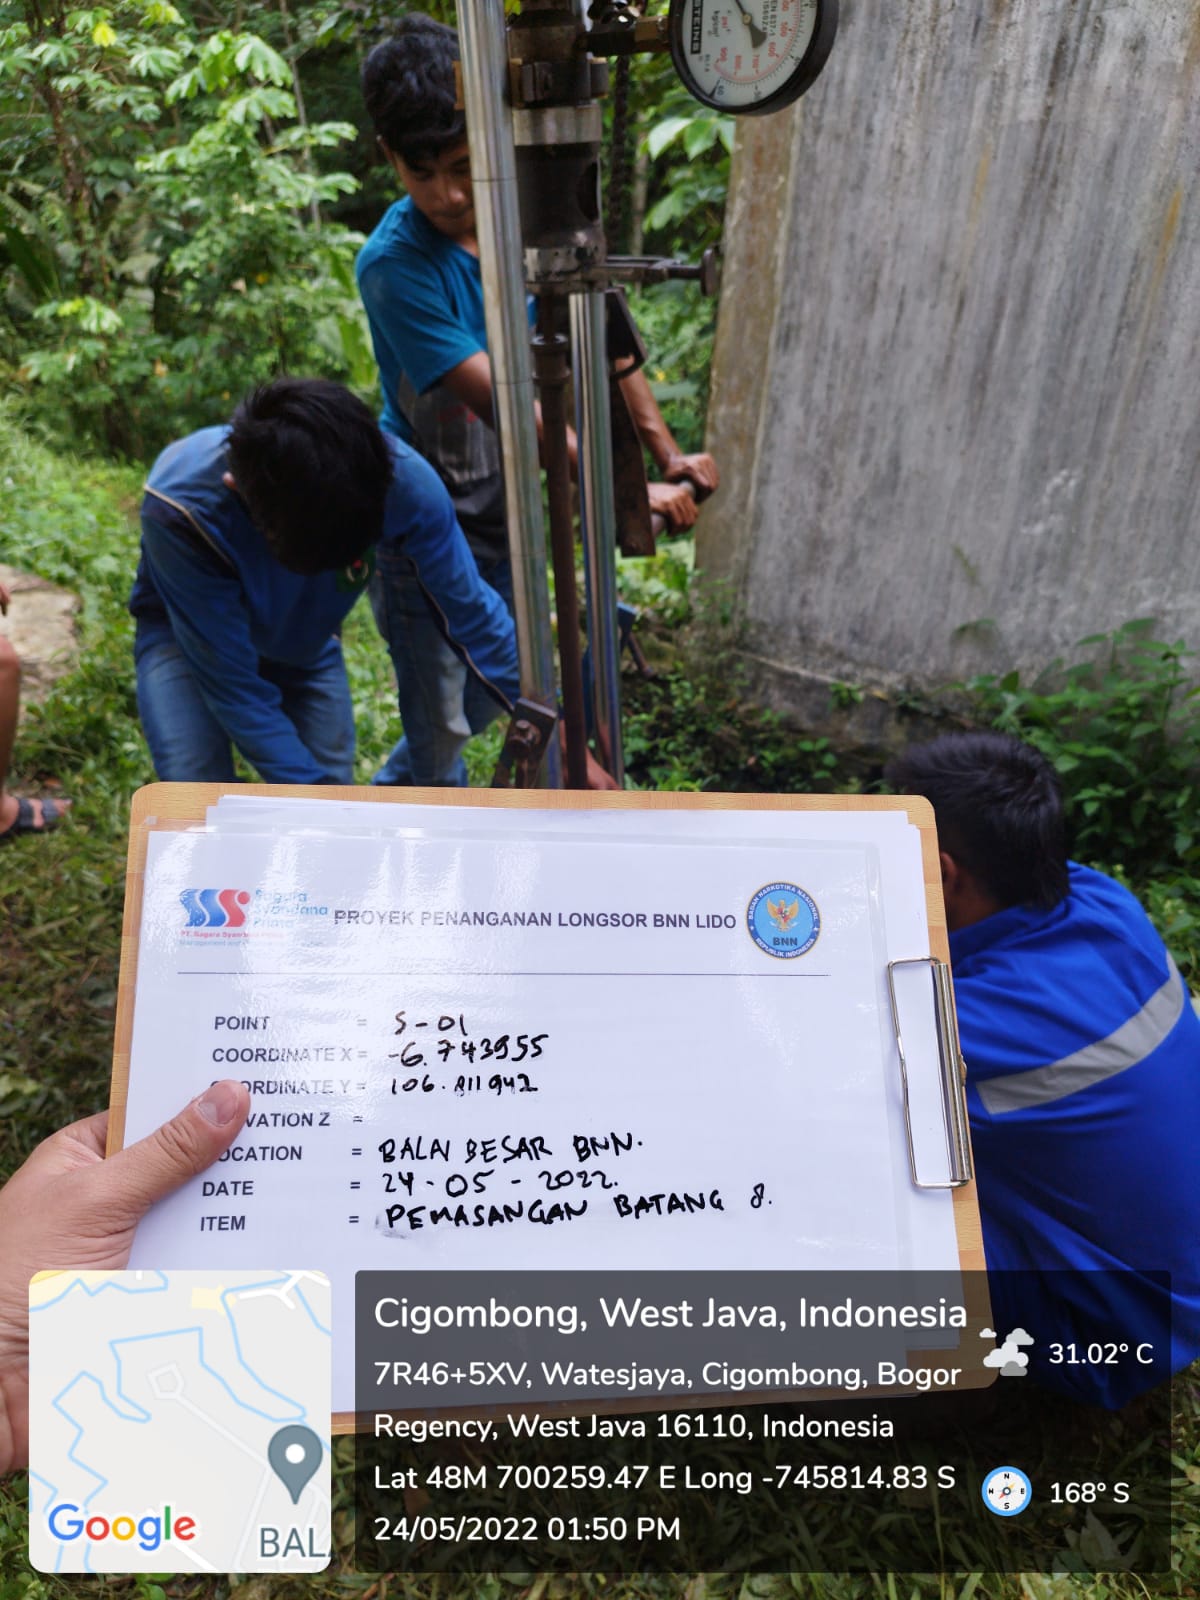 Sagara
Syandana
Prima
PT. Sagara Syandana Prima
PROYEK PENANGANAN LONGSOR BNN LIDO
BADAN NARKOTIKA NASIONAL
BNN
REPUBLIK INDONESIA
POINT = S-01
COORDINATE X = -6.743955
ORDINATE Y = 106.811942
VATION Z =
OCATION = BALAI BESAR BNN.
DATE = 24-05-2022.
ITEM = PEMASANGAN BATANG 8.
Cigombong, West Java, Indonesia
31.02° C
7R46+5XV, Watesjaya, Cigombong, Bogor
Regency, West Java 16110, Indonesia
Lat 48M 700259.47 E Long -745814.83 S
168° S
24/05/2022 01:50 PM
Google
BALA